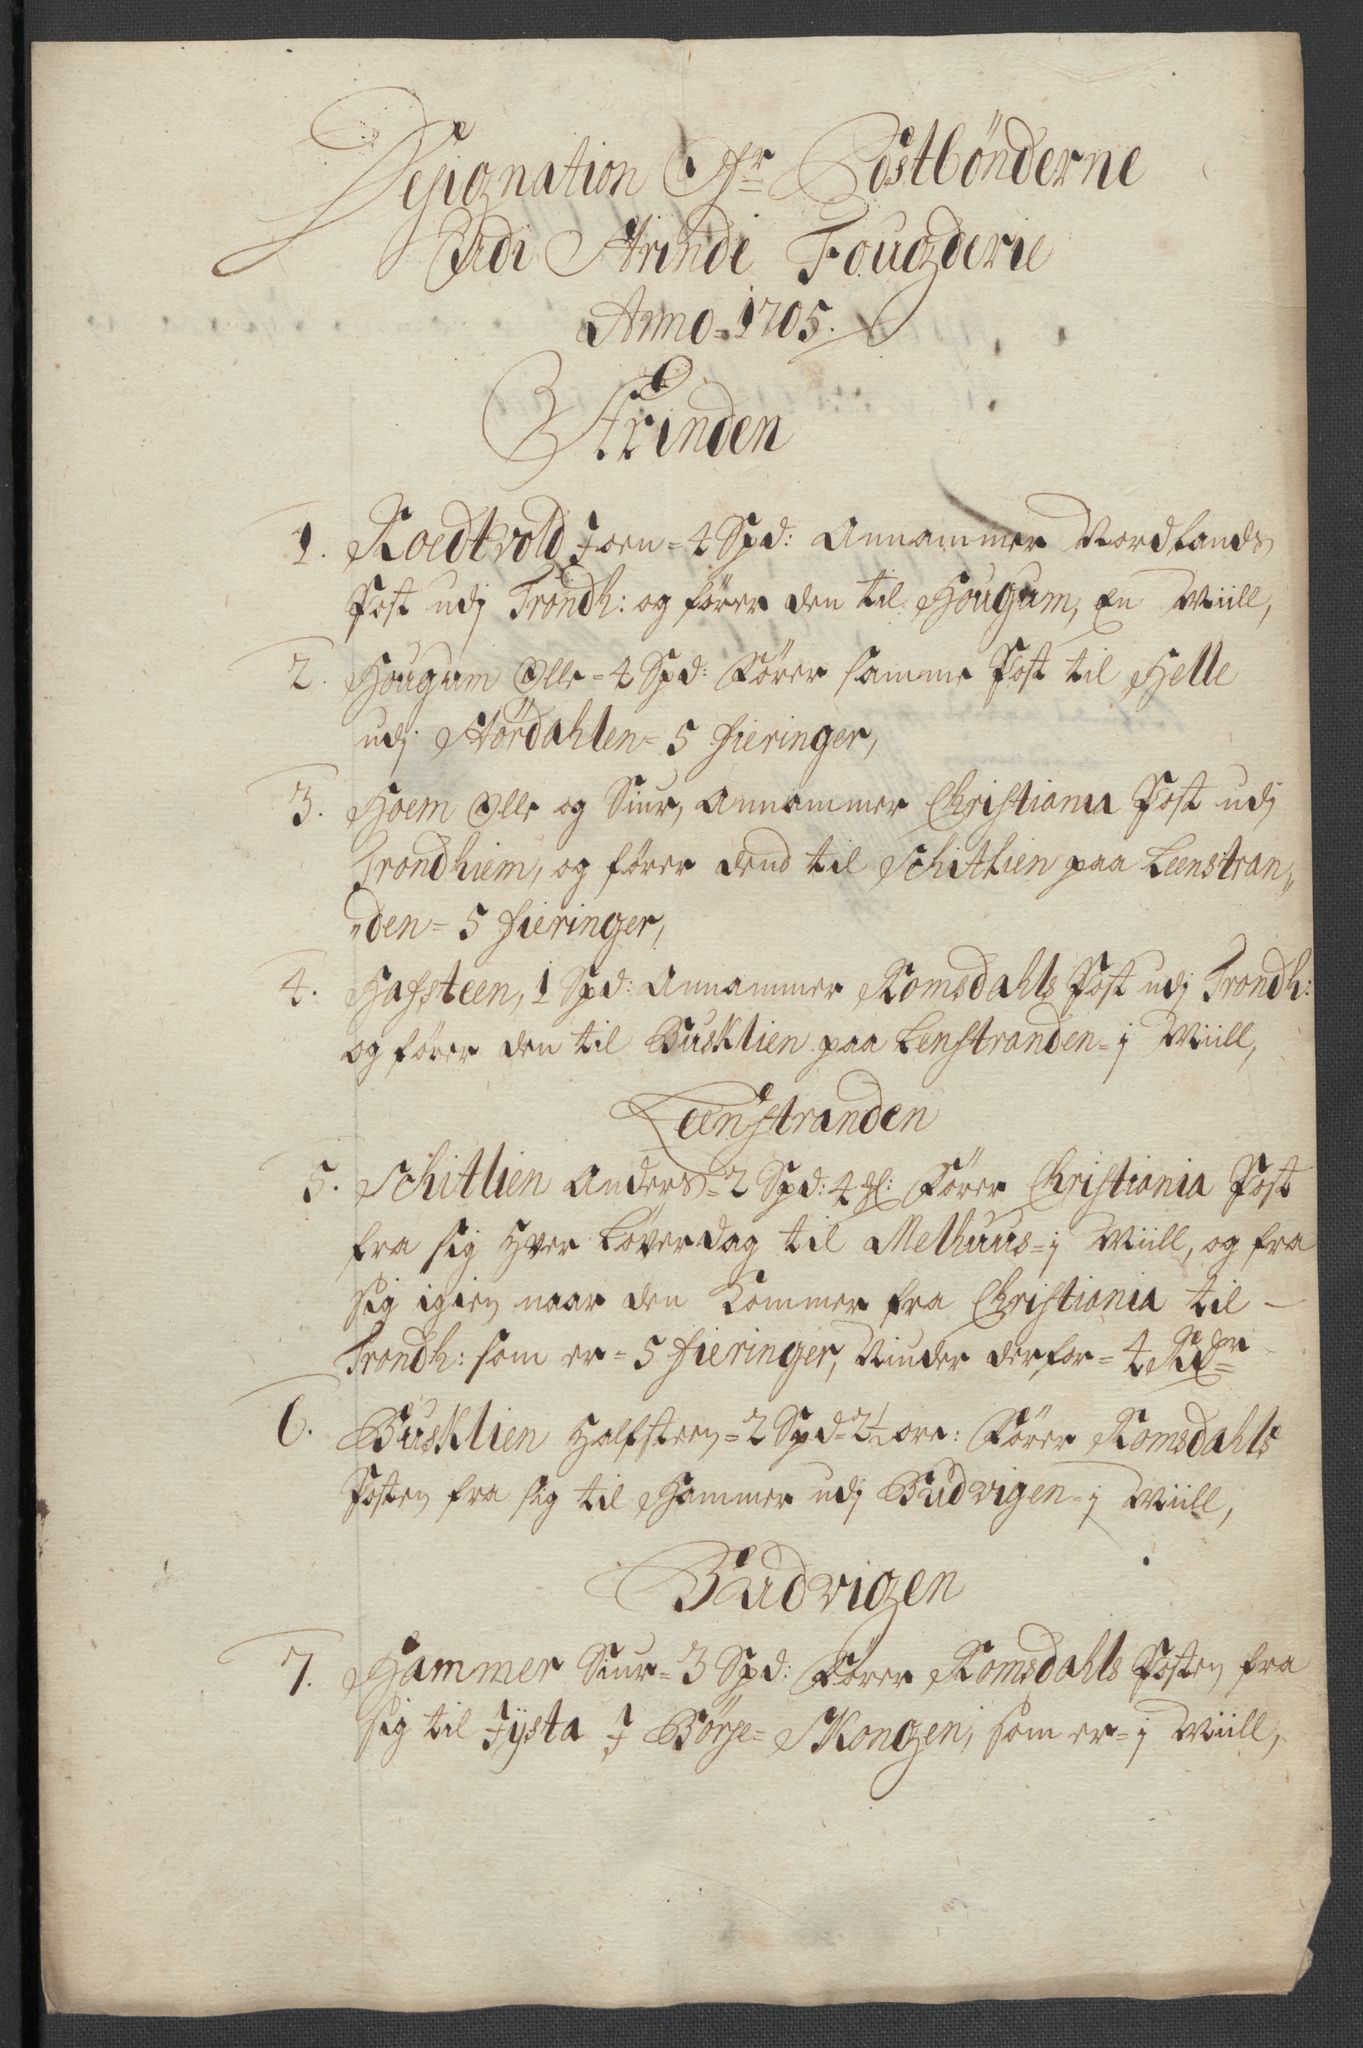 Designation Ofr Postbönderne
Udi Strinde Fougderie
Anno 1705.
Strinden
1. Roedtvold Joen = 4 Spd: Annammer Nordlands
Post udj Trondh: og fører den til Hougum, En Miill,
2. Hougum Olle = 4 Spd: Fører samme Post til Helle
udj Stördahlen = 5 fieringer,
3. Hoem Olle og Siur, Annammer Christiania Post udj
Trondhiem, og fører dend til Schitlien paa Leenstran„
„den = 5 fieringer,
4. Hafsteen, 1 Spd: Annammer Romsdahls Post udj Trondh:
og fører den til Busklien paa Lenstranden = j Miill,
Leenstranden
5. Schitlien Anders = 2 Spd: 4 Fører Christiania Post
fra sig hver Løverdag til Melhuus = j Miill, og fra
sig igien naar den Kommer fra Christiania til
Trondh: som er = 5 fieringer, Niuder derfor = 4
6. Busklien Halfsteen = 2 Spd = 2½ øre: Fører Romsdahls
Posten fra sig til Hammer udj Budvigen = j Miill,
Budvigen
7. Hammer Siur = 3 Spd: Fører Romsdahls Posten fra
sig til Jysta J Börse = Skongen, som er = j Miill,